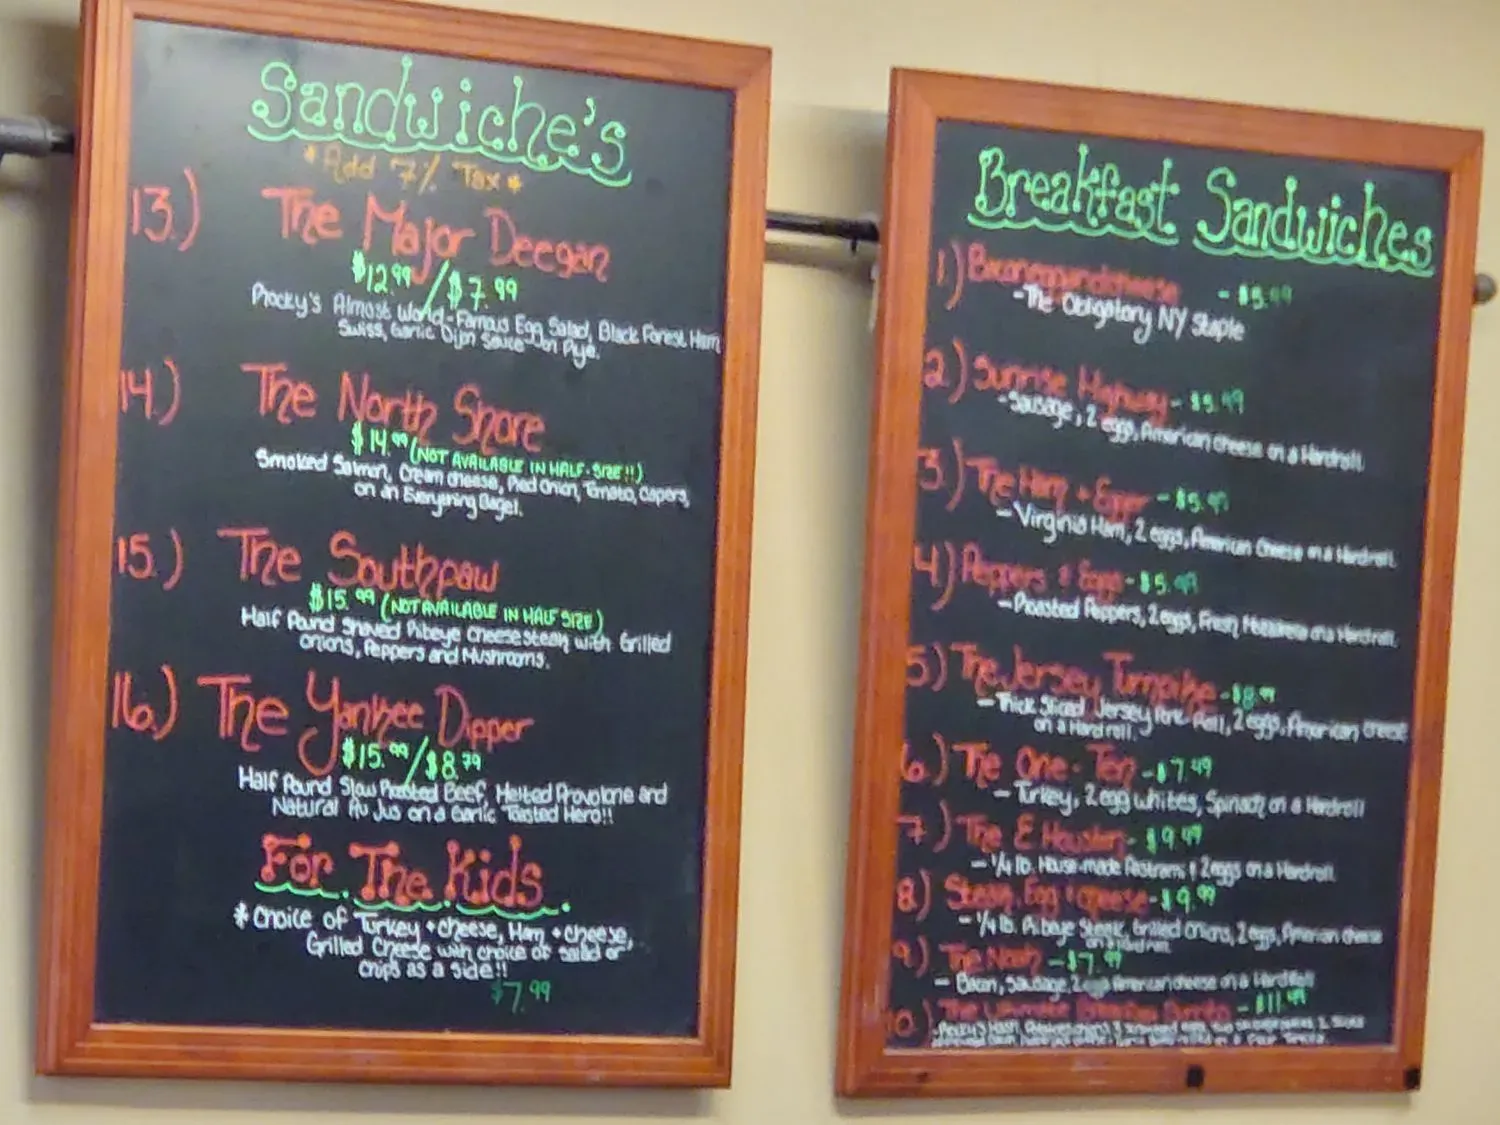 Sandwiche's
*Add 7% Tax*
13.) The Major Deegan
$12.99/$7.99
Rocky's Almost World-Famous Egg Salad, Black Forest Ham
Swiss, Garlic Dijon Sauce on Rye.
14.) The North Shore
$14.99 (NOT AVAILABLE IN HALF-SIZE!!)
Smoked Salmon, Cream cheese, Red Onion, Tomato, Capers,
on an Everything Bagel.
15.) The Southpaw
$15.99 (NOT AVAILABLE IN HALF SIZE)
Half Pound Shaved Ribeye Cheesesteak with Grilled
Onions, Peppers and Mushrooms.
16.) The Yankee Dipper
$15.99/$8.79
Half Pound Slow Roasted Beef, Melted Provolone and
Natural Au Jus on a Garlic Toasted Hero!!
For The Kids
* Choice of Turkey + cheese, Ham + cheese,
Grilled Cheese with choice of salad or
chips as a side!!
$7.99
Breakfast Sandwiches
1) Baconeggandcheese - $5.99
- The Obligatory NY Staple
2) Sunrise Highway - $5.99
- Sausage, 2 eggs, American cheese on a Hardroll.
3) The Ham + Egger - $5.99
- Virginia Ham, 2 eggs, American Cheese on a Hardroll.
4) Peppers & Eggs - $5.99
- Roasted Peppers, 2 eggs, Fresh Mozzarella on a Hardroll.
5) The Jersey Turnpike - $8.99
- Thick Sliced Jersey Pork Roll, 2 eggs, American cheese
on a Hard roll.
6.) The One-Ten - $7.49
- Turkey, 2 egg whites, Spinach on a Hardroll
7) The E Houston - $9.49
- 1/4 lb. House-made Pastrami & 2 eggs on a Hardroll.
8) Steak, Egg + cheese - $9.99
- 1/4 lb. Ribeye Steak, Grilled Onions, 2 eggs, American cheese
on a Hard roll.
9.) The Noah - $7.99
- Bacon, Sausage, 2 eggs American cheese on a Hard Roll
10.) The Breakfast Burrito - $11.49
- Rocky's Hash,